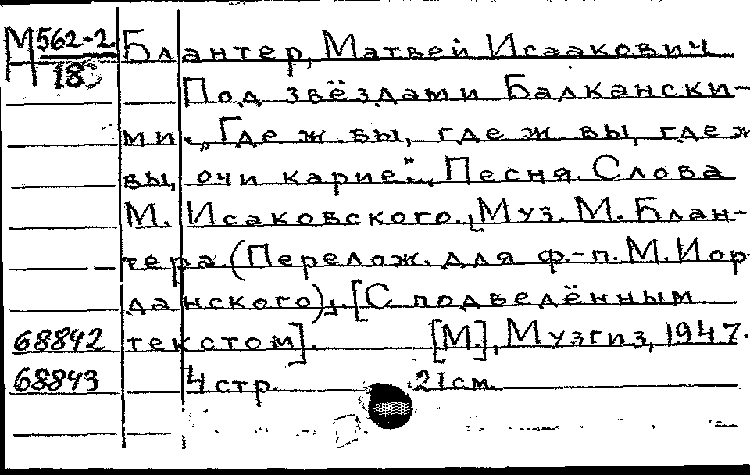 М 562-2 Блантер, Матвей Исаакович
18
Под звёздами Балкански-
ми. „Где ж вы, где ж вы, где ж
вы, очи карие". Песня. Слова
М. Исаковского. Муз. М. Блан-
тера (Перелож. для ф.-п. М. Иор
данского). [С подведённым
68842 текстом]. [М], Музгиз, 1947.
68843 4 стр. 21 см.